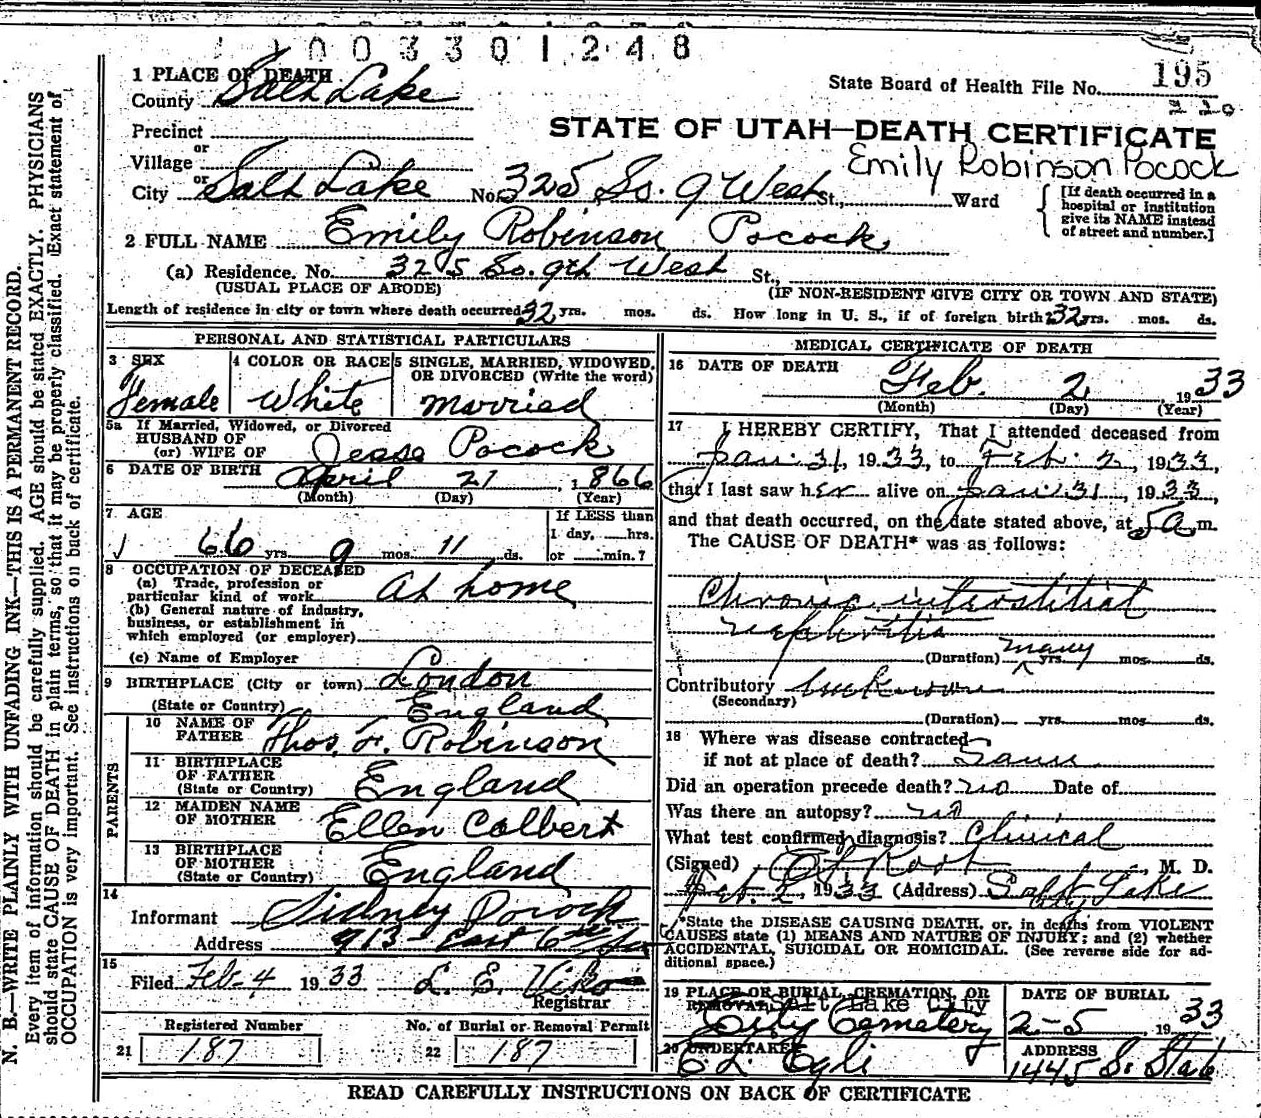 1003301248
1 PLACE OF DEATH
County Salt Lake
State Board of Health File No. 195
220
Precinct
or
Village
or
City Salt Lake No. 325 So. 9 West St., Ward
STATE OF UTAH—DEATH CERTIFICATE
Emily Robinson Pocock
[If death occurred in a
hospital or institution
give its NAME instead
of street and number.]
2 FULL NAME Emily Robinson Pocock
(a) Residence. No. 325 So. 9th West St.,
(USUAL PLACE OF ABODE) (IF NON-RESIDENT GIVE CITY OR TOWN AND STATE)
Length of residence in city or town where death occurred 32 yrs. mos. ds. How long in U. S., if of foreign birth 32 yrs. mos. ds.
PERSONAL AND STATISTICAL PARTICULARS
3 SEX
Female
4 COLOR OR RACE
White
5 SINGLE, MARRIED, WIDOWED,
OR DIVORCED (Write the word)
Married
5a If Married, Widowed, or Divorced
HUSBAND OF
(or) WIFE OF Jesse Pocock
6 DATE OF BIRTH April 21, 1866
(Month) (Day) (Year)
7 AGE
66 yrs. 9 mos. 11 ds.
If LESS than
1 day, hrs.
or min.?
8 OCCUPATION OF DECEASED
(a) Trade, profession or
particular kind of work At home
(b) General nature of industry,
business, or establishment in
which employed (or employer)
(c) Name of Employer
9 BIRTHPLACE (City or town) London
(State or Country) England
PARENTS
10 NAME OF
FATHER Thos. F. Robinson
11 BIRTHPLACE
OF FATHER
(State or Country) England
12 MAIDEN NAME
OF MOTHER Ellen Colbert
13 BIRTHPLACE
OF MOTHER
(State or Country) England
14
Informant Sidney Pocock
Address 913 East 6th
15
Filed Feb 4 1933 L. E. Viko
Registrar
Registered Number
21 187
No. of Burial or Removal Permit
22 187
MEDICAL CERTIFICATE OF DEATH
16 DATE OF DEATH
Feb. 2, 1933
(Month) (Day) (Year)
17 I HEREBY CERTIFY, That I attended deceased from
Jan. 31, 1933, to Feb. 2, 1933,
that I last saw her alive on Jan. 31, 1933,
and that death occurred, on the date stated above, at 5 a m.
The CAUSE OF DEATH* was as follows:
Chronic interstitial
nephritis
(Duration) many yrs. mos. ds.
Contributory unknown
(Secondary)
(Duration) yrs. mos. ds.
18 Where was disease contracted
if not at place of death? Same
Did an operation precede death? no Date of
Was there an autopsy? no
What test confirmed diagnosis? Clinical
(Signed) M. D.
Feb. 2 1933 (Address) Salt Lake
City
*State the DISEASE CAUSING DEATH, or, in deaths from VIOLENT
CAUSES state (1) MEANS AND NATURE OF INJURY; and (2) whether
ACCIDENTAL, SUICIDAL OR HOMICIDAL. (See reverse side for ad-
ditional space.)
19 PLACE OR BURIAL, CREMATION, OR
REMOVAL Salt Lake City
City Cemetery
DATE OF BURIAL
2-5 1933
20 UNDERTAKER
E L Egli
ADDRESS
1445 S. State
READ CAREFULLY INSTRUCTIONS ON BACK OF CERTIFICATE
N. B.—WRITE PLAINLY WITH UNFADING INK—THIS IS A PERMANENT RECORD.
Every item of information should be carefully supplied. AGE should be stated EXACTLY. PHYSICIANS
should state CAUSE OF DEATH in plain terms, so that it may be properly classified. Exact statement of
OCCUPATION is very important. See instructions on back of certificate.